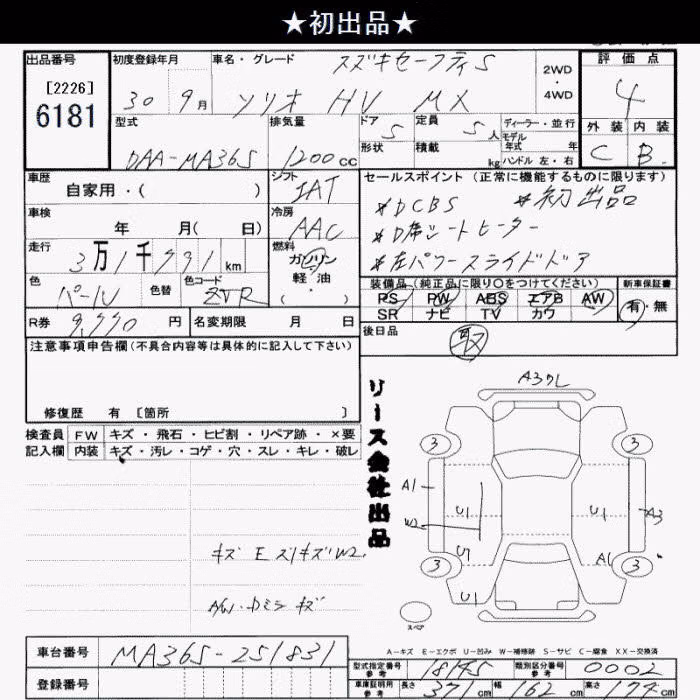 ★初出品★
出品番号
[2226]
6181
初度登録年月
30 9月
車名・グレード
スズキセーフティS
ソリオ HV MX
2WD
・
4WD
評価点
4
外装 内装
C B
型式
DAA-MA36S
排気量
1200cc
ドア 5
形状
定員 5人
積載 kg
ディーラー・並行
モデル年式 年
ハンドル 左・右
車歴
自家用・( )
シフト
IAT
車検
年 月( 日)
冷房
AAC
走行
3万1千991km
燃料
ガソリン
軽油
( ・ )
色
パール
色替
色コード
ZVR
R券 9,990円
名変期限 月 日
セールスポイント(正常に機能するものに限ります)
*DCBS *初出品
*D席シートヒーター
*左パワースライドドア
装備品(純正品に限り○をつけてください)
PS PW ABS エアB AW
SR ナビ TV カワ
新車保証書
有・無
後日品
取
注意事項申告欄(不具合内容等は具体的に記入して下さい)
修復歴 有 [箇所 ]
検査員記入欄
FW キズ・飛石・ヒビ割・リペア跡・×要
内装 キズ・汚レ・コゲ・穴・スレ・キレ・破レ
リース会社出品
キズ E スリキズW2
AW・Dミラ キズ
A3クレ
3 3
A1
U1 U1 A3
W2
U1
3 A1 3
U1
スペア
A-キズ E-エクボ U-凹み W-補修跡 S-サビ C-腐食 XX-交換済
車台番号
MA36S-251831
登録番号
型式指定番号 参考 18145
類別区分番号 参考 0002
車庫証明用 参考 長さ 371cm 幅 162cm 高さ 174cm